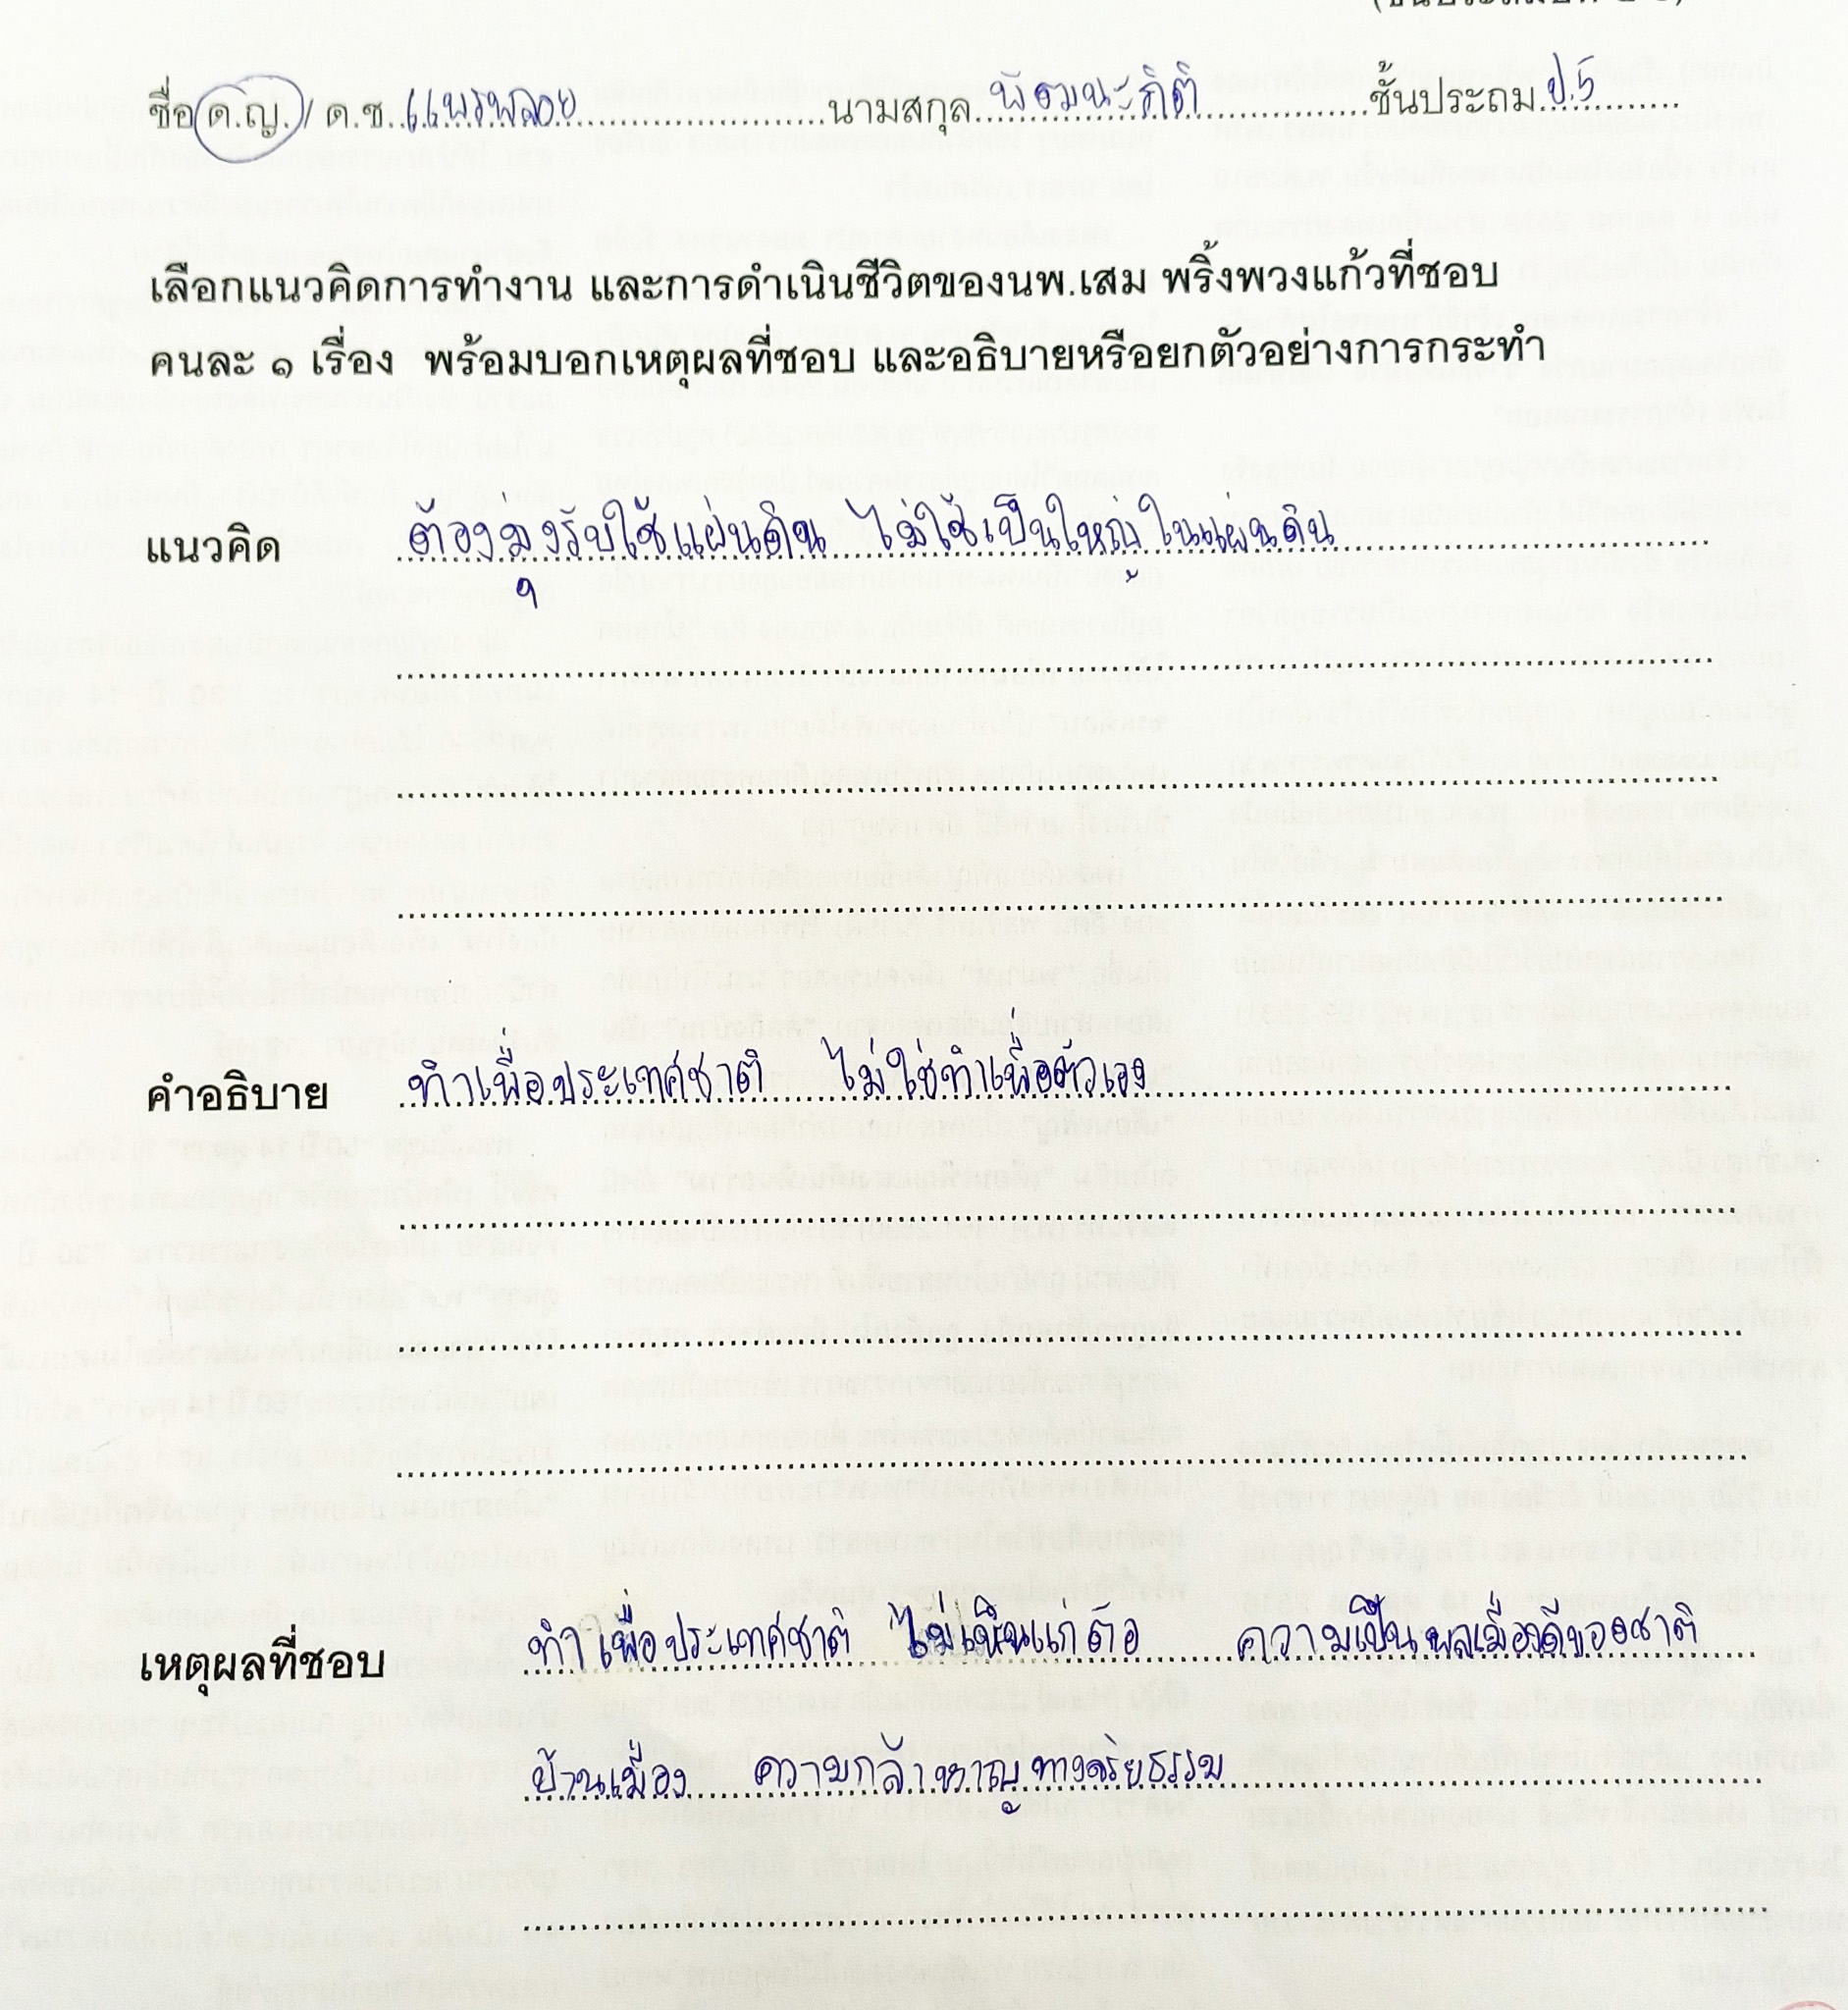 ชื่อ ด.ญ. / ด.ช. แพรพลอย นามสกุล ชั้นประถม ป.5
เลือกแนวคิดการทำงาน และการดำเนินชีวิตของนพ.เสม พริ้งพวงแก้วที่ชอบ
คนละ ๑ เรื่อง พร้อมบอกเหตุผลที่ชอบ และอธิบายหรือยกตัวอย่างการกระทำ
แนวคิด ต้องมุ่งรับใช้แผ่นดิน ไม่ใช่เป็นใหญ่ในแผ่นดิน
คำอธิบาย ทำเพื่อประเทศชาติ ไม่ใช่ทำเพื่อตัวเอง
เหตุผลที่ชอบ ทำเพื่อประเทศชาติ ไม่เห็นแก่ตัว ความเป็นพลเมืองดีของชาติ
บ้านเมือง ความกล้าหาญทางจริยธรรม